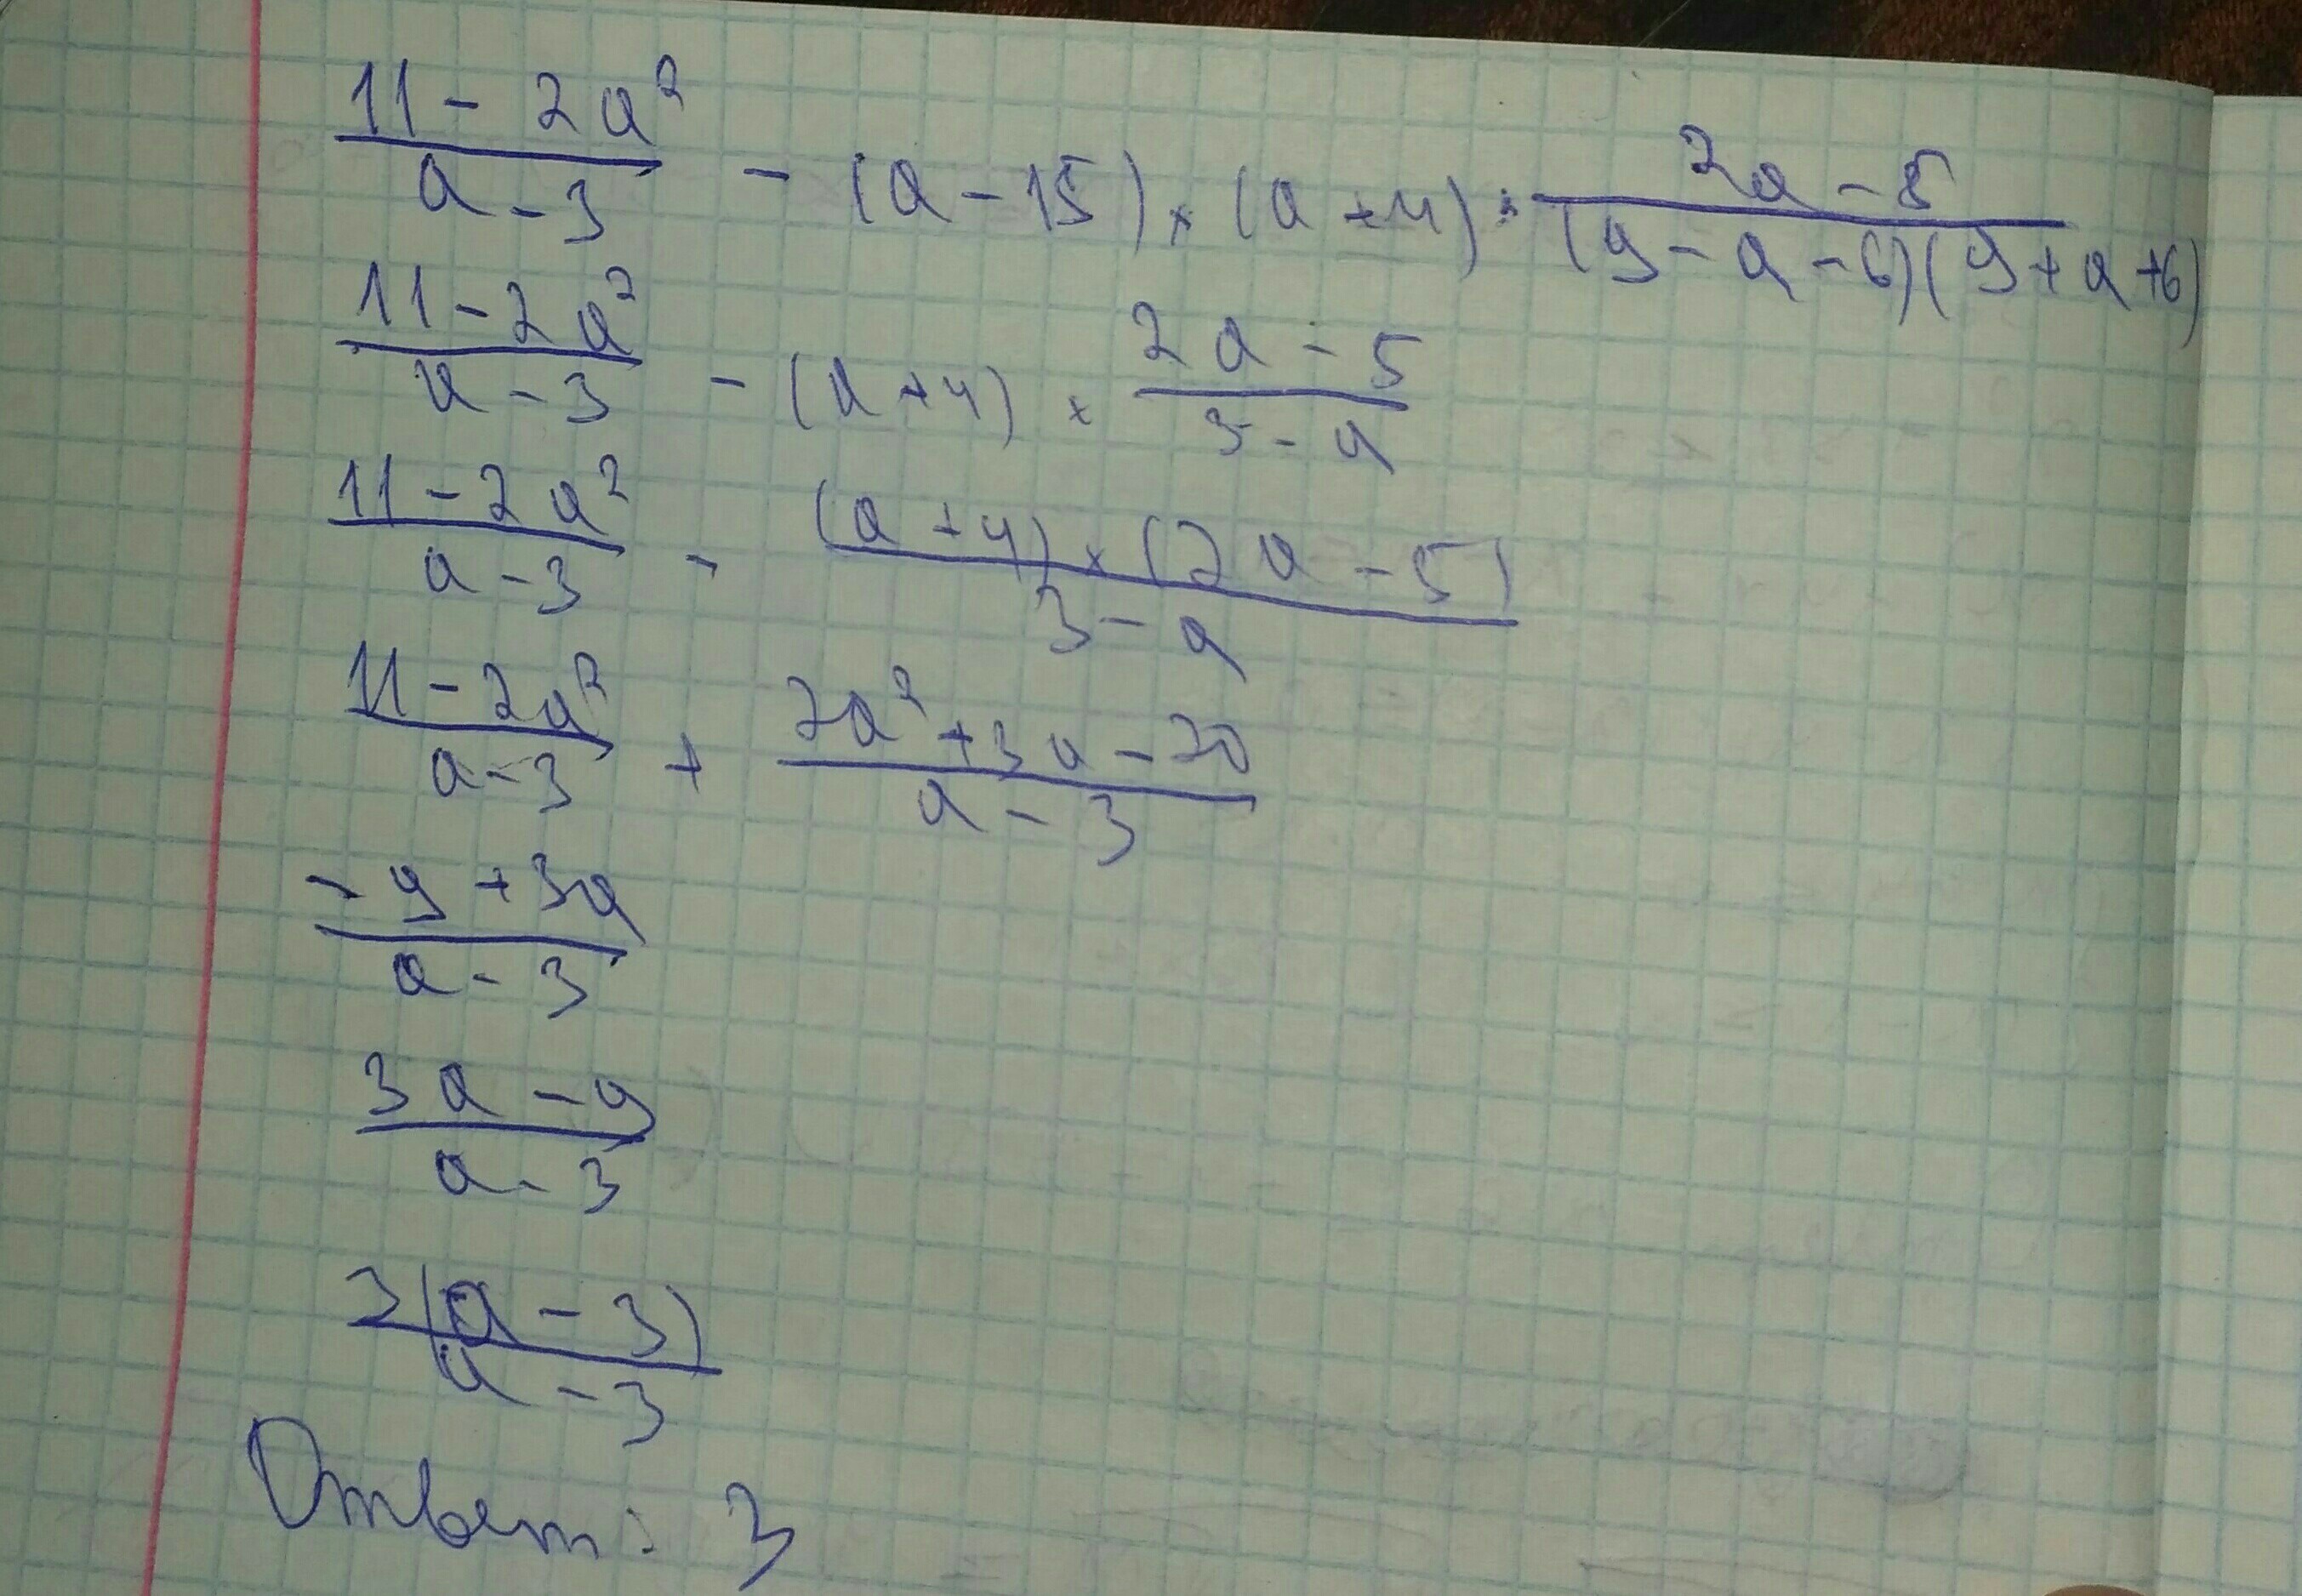 (11 - 2a²)/(a - 3) - (a - 15) × (a + 4) × (2a - 5)/((9 - a - 6)(9 + a + 6))
(11 - 2a²)/(a - 3) - (a + 4) × (2a - 5)/(3 - a)
(11 - 2a²)/(a - 3) - ((a + 4) × (2a - 5))/(3 - a)
(11 - 2a²)/(a - 3) + (2a² + 3a - 20)/(a - 3)
(-9 + 3a)/(a - 3)
(3a - 9)/(a - 3)
3(a - 3)/(a - 3)
Ответ: 3